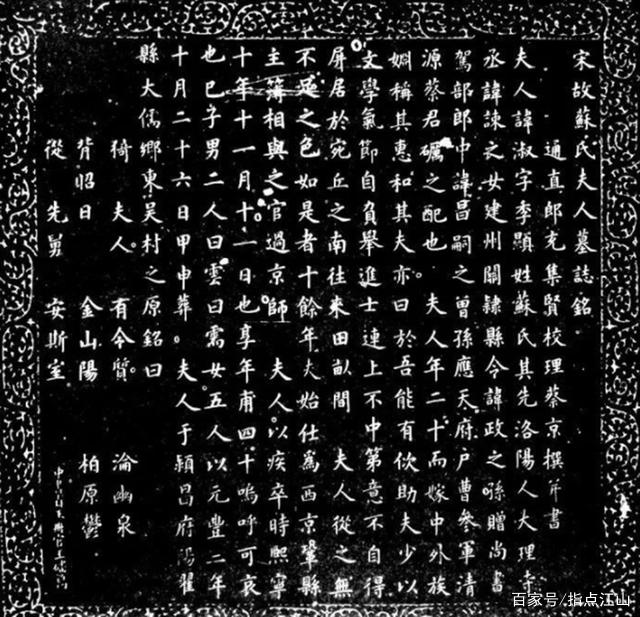 宋故蘇氏夫人墓誌銘
通直郎充集賢校理蔡京撰并書
夫人諱淑字季顯姓蘇氏其先洛陽人大理寺
丞諱諫之女建州關隸縣令諱政之孫贈尚書
駕部郎中諱昌嗣之曾孫應天府戶曹參軍清
源蔡君礪之配也 夫人年二十而嫁中外族
姻稱其惠和其夫亦曰於吾能有攸助夫少以
文學氣節自負舉進士連上不中第意不自得
屏居於宛丘之南往來田畝間 夫人從之無
不足之色如是者十餘年夫始仕爲西京鞏縣
主簿相與之官過京師 夫人以疾卒時熙寧
十年十一月十一日也享年甫四十嗚呼可哀
也已子男二人曰雲曰需女五人以元豐二年
十月二十六日甲申葬 夫人于潁昌府陽翟
縣大儒鄉東吳村之原銘曰
猗夫人 有令質 淪幽泉
背昭日 金山陽 柏原鬱
從先舅 安斯室
百家号/指点江山